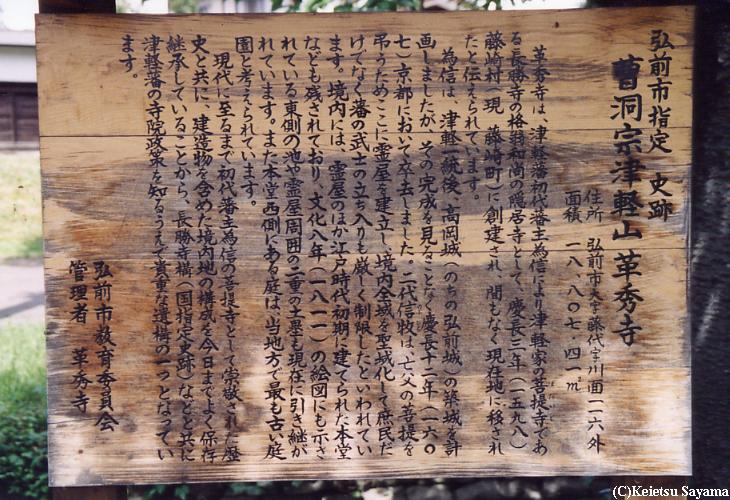 弘前市指定　史跡
曹洞宗津軽山　革秀寺
住所　弘前市大字藤代字川面一一六外
面積　一八、八〇七・四一㎡
革秀寺は、津軽藩初代藩主為信により津軽家の菩提寺であ
る長勝寺の格翁和尚の隠居寺として、慶長三年（一五九八）
藤崎村（現　藤崎町）に創建され、間もなく現在地に移され
たと伝えられています。
為信は、津軽統一後、高岡城（のちの弘前城）の築城を計
画しましたが、その完成を見ることなく慶長十二年（一六〇
七）京都において卒去しました。二代信牧は、亡父の菩提を
弔うためここに霊屋を建立し、境内全域を聖域化して庶民だ
けでなく藩の武士の立ち入りも厳しく制限したといわれてい
ます。境内には、霊屋のほか江戸時代初期に建てられた本堂
なども残されており、文化八年（一八一一）の絵図にも示さ
れている東側の池や霊屋周囲の二重の土塁も現在に引き継が
れています。また本堂西側にある庭は、当地方で最も古い庭
園と考えられています。
現代に至るまで初代藩主為信の菩提寺として崇敬された歴
史と共に、建造物を含めた境内地の構成を今日までよく保存
継承していることから、長勝寺構（国指定史跡）などと共に
津軽藩の寺院政策を知るうえで貴重な遺構の一つとなってい
ます。
弘前市教育委員会
管理者　革秀寺
(C)Keietsu Sayama